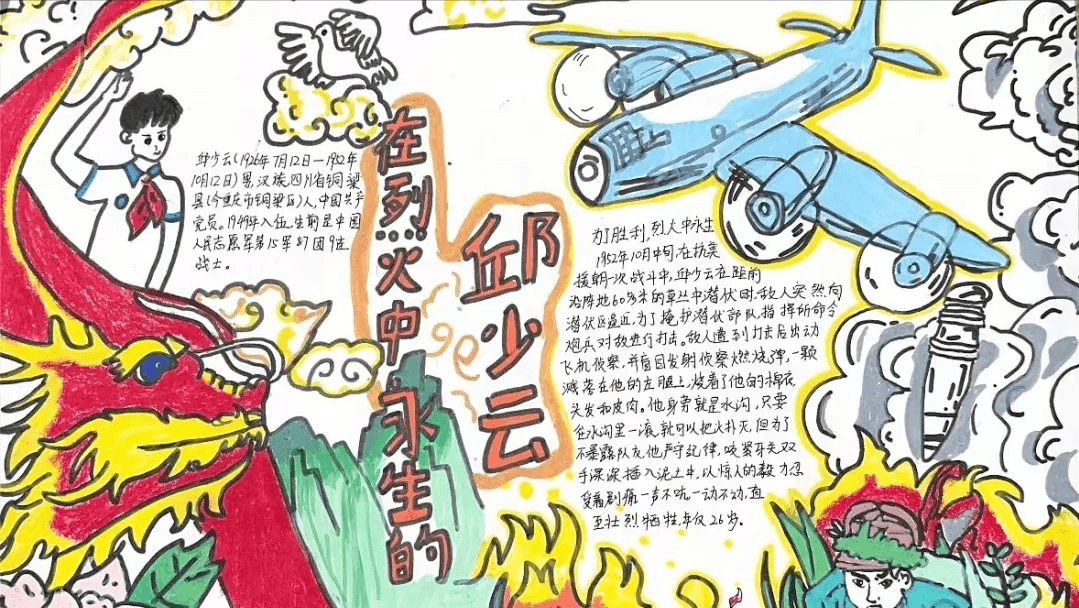 邱少云(1926年7月12日一1952年
10月12日)男,汉族,四川省铜梁
县(今重庆市铜梁区)人,中国共产
党员。1949年入伍,生前是中国
人民志愿军第15军87团9连
战士。
在烈火中永生的
邱少云
为了胜利,烈火中永生
1952年10月中旬,在抗美
援朝一次战斗中,邱少云在距前
沿阵地60多米的草丛中潜伏时,敌人突然向
潜伏区逼近,为了掩护潜伏部队,指挥所命令
炮兵对敌进行打击。敌人遭到打击后出动
飞机侦察,并盲目发射侦察燃烧弹,一颗
溅落在他的左腿上,烧着了他的棉衣,
头发和皮肉。他身旁就是水沟,只要
在水沟里一滚,就可以把火扑灭,但为了
不暴露队友,他严守纪律,咬紧牙关双
手深深插入泥土中,以惊人的毅力忍
受着剧痛一声不吭一动不动,直
至壮烈牺牲,年仅26岁。